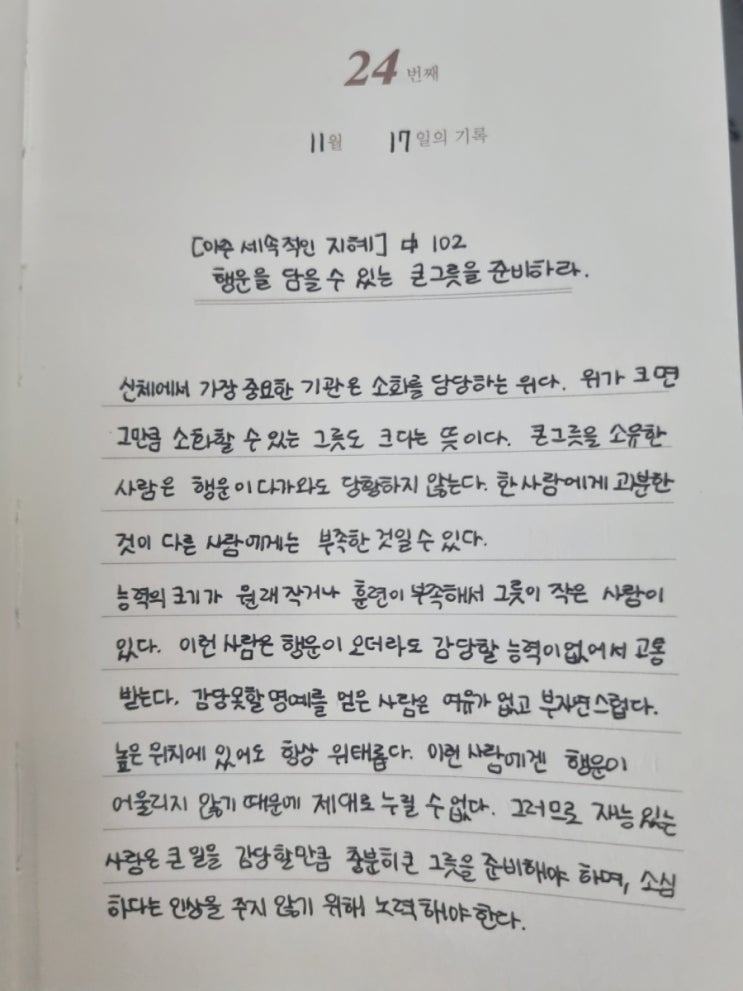 24 번째
11월 17일의 기록
[아주 세속적인 지혜] 中 102
행운을 담을 수 있는 큰그릇을 준비하라.
신체에서 가장 중요한 기관은 소화를 담당하는 위다. 위가 크면
그만큼 소화할 수 있는 그릇도 크다는 뜻이다. 큰그릇을 소유한
사람은 행운이 다가와도 당황하지 않는다. 한 사람에게 과분한
것이 다른 사람에게는 부족한 것일 수 있다.
능력의 크기가 원래 작거나 훈련이 부족해서 그릇이 작은 사람이
있다. 이런 사람은 행운이 오더라도 감당할 능력이 없어서 고통
받는다. 감당못할 명예를 얻은 사람은 여유가 없고 부자연스럽다.
높은 위치에 있어도 항상 위태롭다. 이런 사람에겐 행운이
어울리지 않기 때문에 제대로 누릴 수 없다. 그러므로 재능 있는
사람은 큰 일을 감당할만큼 충분히 큰 그릇을 준비해야 하며, 소심
하다는 인상을 주지 않기 위해 노력해야 한다.